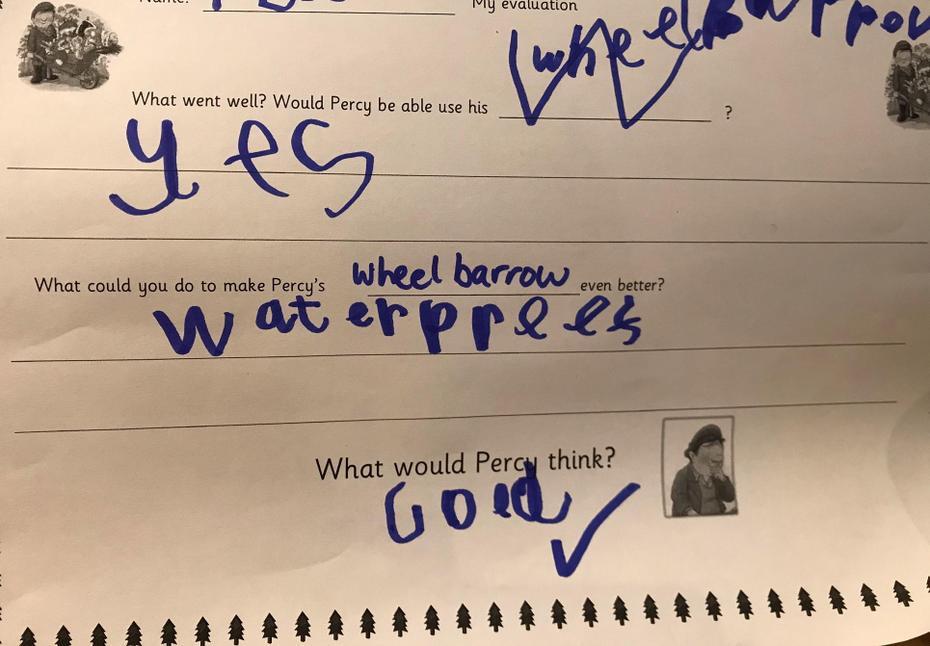 Name: My evaluation
wheelbarrow
What went well? Would Percy be able use his ?
yes
What could you do to make Percy's wheel barrow even better?
waterprees
What would Percy think?
Good